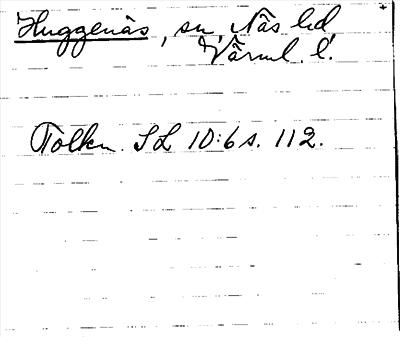 Huggenäs, sn, Näs hd,
Värml. l.
Tolkn. SL 10:6 s. 112.